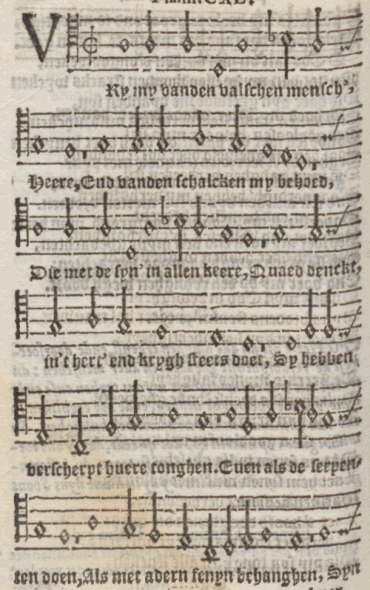 V Ry my vanden valschen mensch',
Heere, End vanden schalcken my behoed,
Die met de syn' in allen keere, Quaed denckt,
in't hert' end krygh steets doet, Sy hebben
verscherpt huere tonghen. Even als de serpen-
ten doen, Als met adern fenyn behanghen, Syn